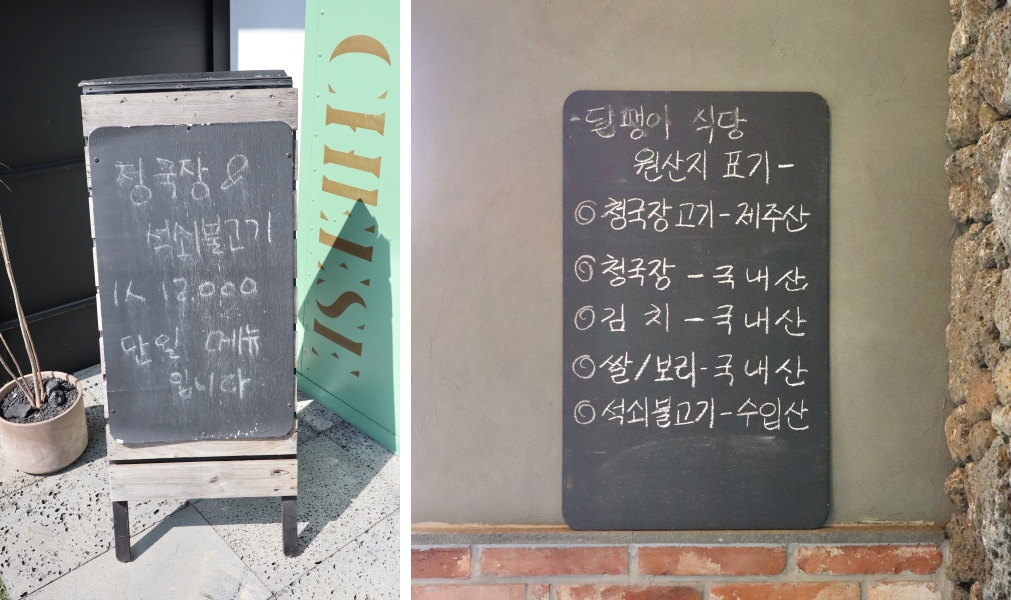 청국장 &
석쇠불고기
1人 12.000
단일 메뉴
입니다
CHEESE
-달팽이 식당
원산지 표기-
◎청국장고기-제주산
◎청국장 - 국내산
◎김 치 - 국내산
◎쌀/보리-국내산
◎석쇠불고기-수입산